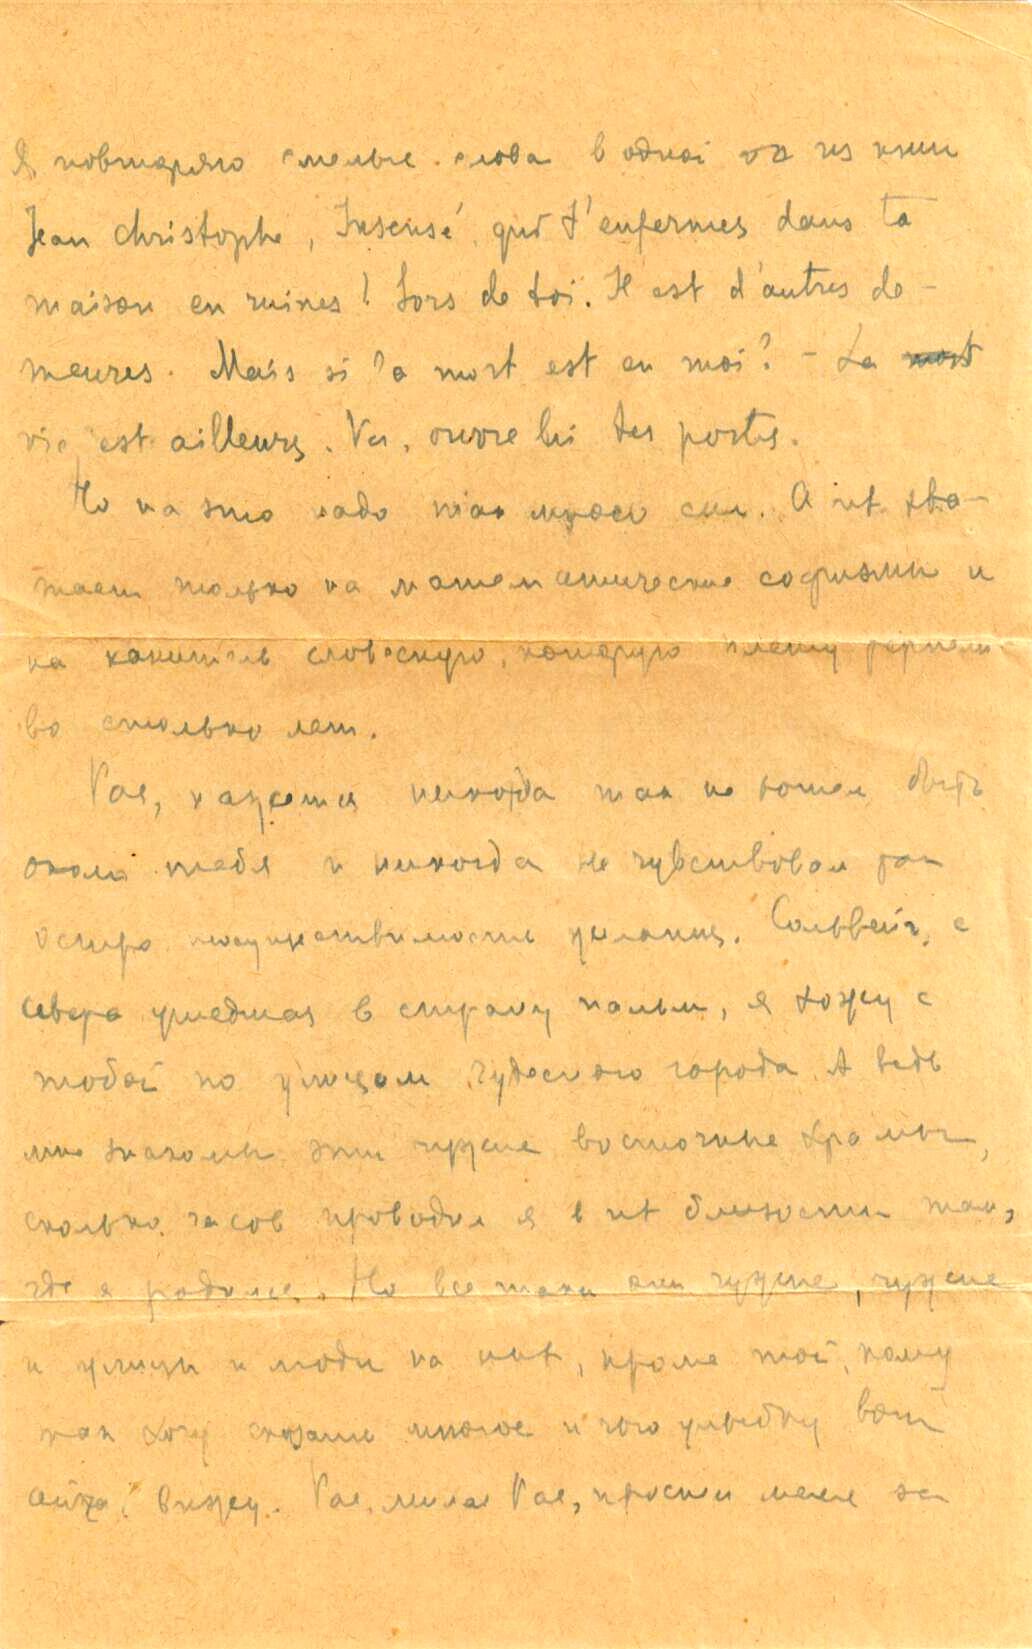 Я повторяю смелые слова в одной из книг
Jean Christophe, Insensé, qui t'enfermes dans ta
maison en ruines! Sors de toi. Il est d'autres de-
meures. Mais si la mort est en moi? - La
vie est ailleurs. Va, ouvre lui tes portes.
Но на это надо так много сил. А их хва-
тает только на математические софизмы и
на канитель словесную, которую плету
во столько лет.
Рая, кажется никогда так не хотел быть
около тебя и никогда не чувствовал так
остро неосуществимость желания. Сольвейг, с
севера ушедшая в страну пальм, я хожу с
тобой по улицам чудесного города. А ведь
мне знакомы эти чужие восточные храмы,
сколько часов проводил я в их близости там,
где я родился. Но все таки они чужие, чужие
и улицы и люди на них, кроме той, кому
так хочу сказать многое и чью улыбку вот
сейчас вижу. Рая, милая Рая, прости меня за